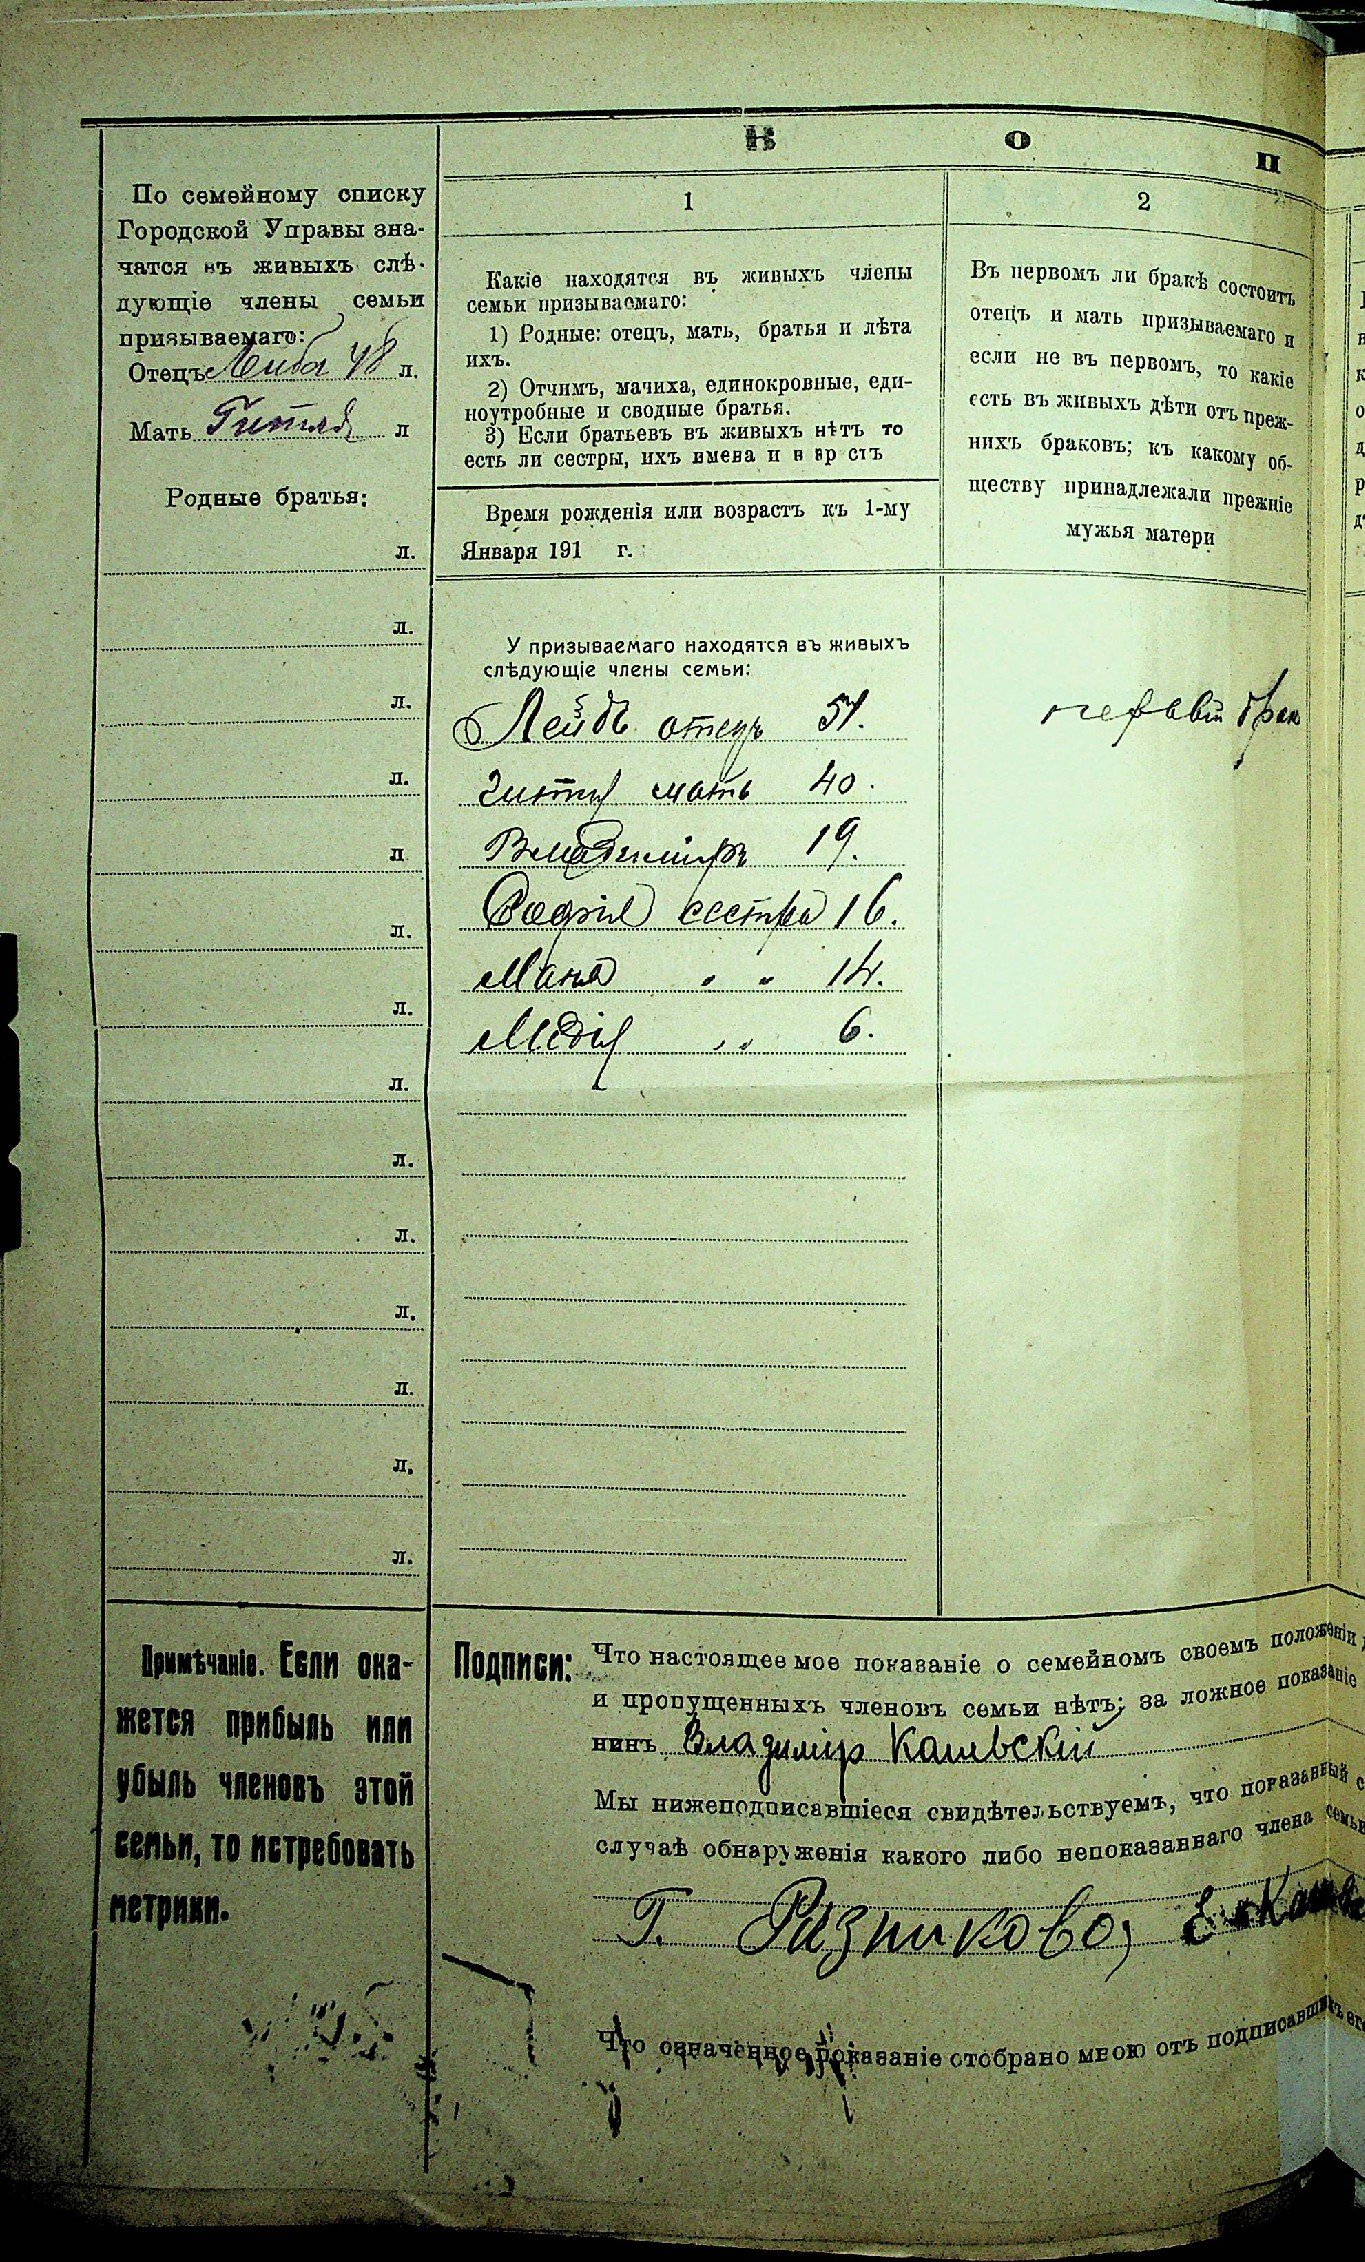 К О П
По семейному списку
Городской Управы зна-
чатся въ живыхъ слѣ-
дующіе члены семьи
призываемаго:
Отецъ Лейба 48 л.
Мать л
Родные братья:
л.
л.
л.
л.
л
л.
л.
л.
л.
л.
л.
л.
л.
л.
1
Какіе находятся въ живыхъ члены
семьи призываемаго:
1) Родные: отецъ, мать, братья и лѣта
ихъ.
2) Отчимъ, мачиха, единокровные, еди-
ноутробные и сводные братья.
3) Если братьевъ въ живыхъ нѣтъ то
есть ли сестры, ихъ имена и в зр стъ
Время рожденія или возрастъ къ 1-му
Января 191 г.
У призываемаго находятся въ живыхъ
слѣдующіе члены семьи:
Лейбъ отецъ 51.
мать 40.
Владиміръ 19.
Софія сестра 16.
Маня " " 14.
" 6.
2
Въ первомъ ли бракѣ состоитъ
отецъ и мать призываемаго и
если не въ первомъ, то какіе
есть въ живыхъ дѣти отъ преж-
нихъ браковъ; къ какому об-
ществу принадлежали прежніе
мужья матери
Примѣчаніе. Если ока-
жется прибыль или
убыль членовъ этой
семьи, то истребовать
метрики.
Подписи: Что настоящее мое показаніе о семейномъ своемъ положеніи
и пропущенныхъ членовъ семьи нѣтъ; за ложное показаніе
нинъ Владиміръ Каневскій
Мы нижеподписавшіеся свидѣтельствуемъ, что показанный с
случаѣ обнаруженія какого либо непоказаннаго члена семьи
Г.
Что означенное показаніе отобрано мною отъ подписавшихъ его